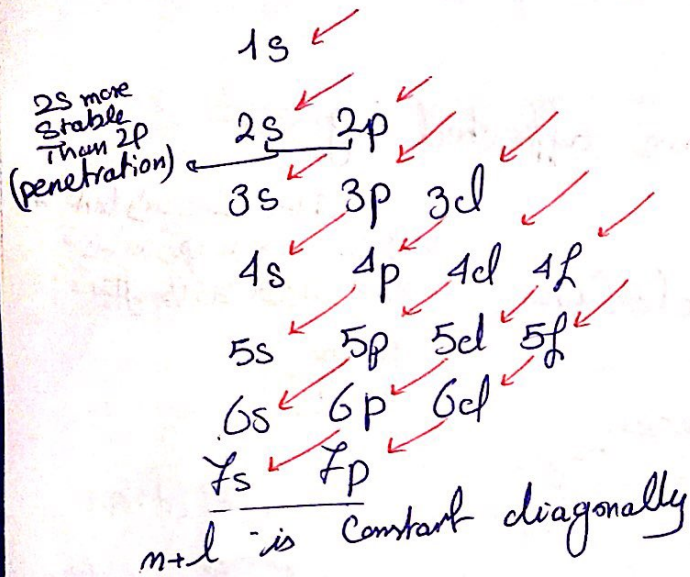 1s
2s more
stable
Than 2p
(penetration)
2s 2p
3s 3p 3d
4s 4p 4d 4f
5s 5p 5d 5f
6s 6p 6d
7s 7p
n+l is Constant diagonally